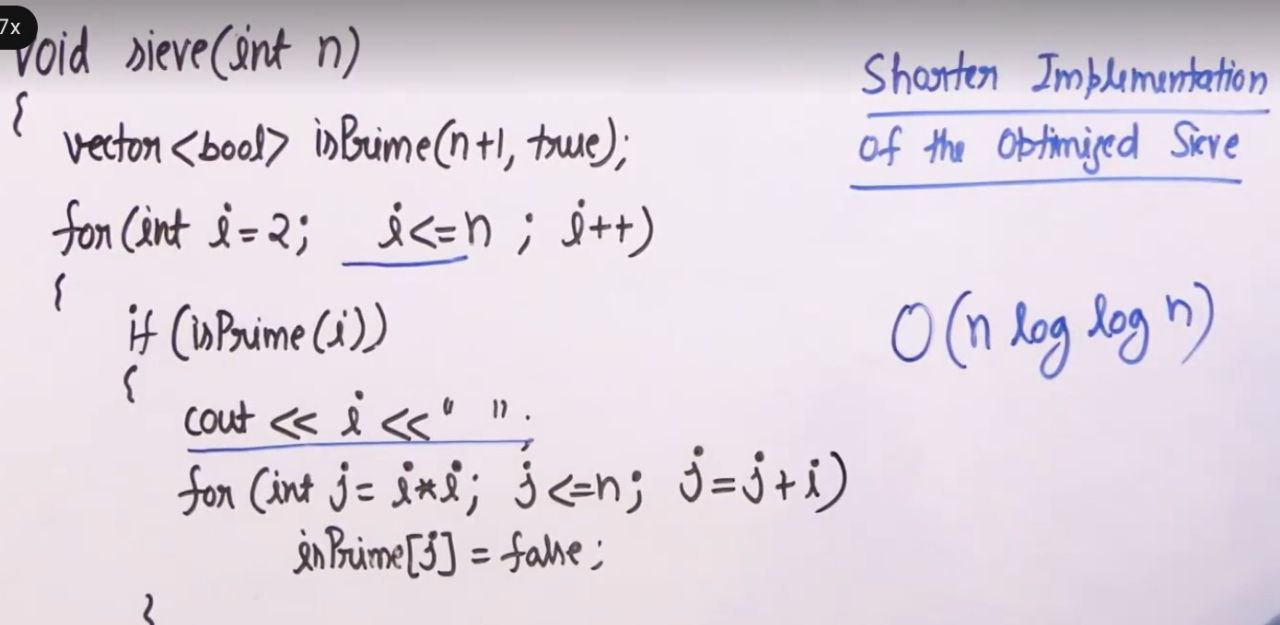 7x
void sieve(int n)
{
vector<bool> isPrime(n+1, true);
for(int i=2; i<=n ; i++)
{
if (isPrime(i))
{
cout << i << " ";
for (int j= i*i; j<=n; j=j+i)
isPrime[j] = false;
}
Shorter Implementation
of the Optimized Sieve
O(n log log n)